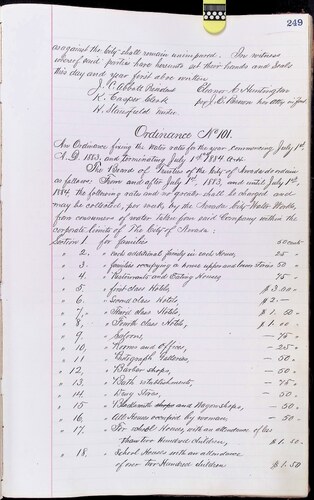 249
as against the City shall remain unimpaired. In witness
whereof said parties have hereunto set their hands and seals
this day and year first above written
J. P. Abbott
K. Casper, Clerk
H. Mansfield
Ordinance No 101.
An Ordinance fixing the water rates for the year commencing July 1st
A.D. 1883, and terminating July 1st 1884
The Board of Trustees of the City of do ordain
as follows: From and after July 1st, 1883, and until July 1st,
1884 the following rates and no greater shall be charged and
may be collected, per month, by the City Water Works,
from consumers of water taken from said Company within the
corporate limits of The City of
Section 1. for families 50 cents
" 2. " each additional family in each House, 25 "
" 3. " families occupying a house upper and lower Stories 50 "
" 4. " Restaurants and Eating Houses 75 "
" 5. " first class Hotels, $ 3.00
" 6. " Second class Hotels, $ 2.—
" 7. " Third class Hotels, $ 1. 50
" 8. " Fourth class Hotels, $ 1. 00
" 9. " Saloons, — 75 "
" 10. " Rooms and Offices, — 25 "
" 11. " Photograph Galleries, — 50 "
" 12. " Barber shops, — 50 "
" 13. " Bath establishments, — 75 "
" 14. " Drug Stores, — 50 "
" 15. " Blacksmith shops and Wagon shops, — 50 "
" 16. " All Houses occupied by women, — 50 "
" 17. " For School Houses, with an attendance of less
than two Hundred children, $ 1. 50
" 18. " School Houses with an attendance
of over two Hundred children $ 1.50